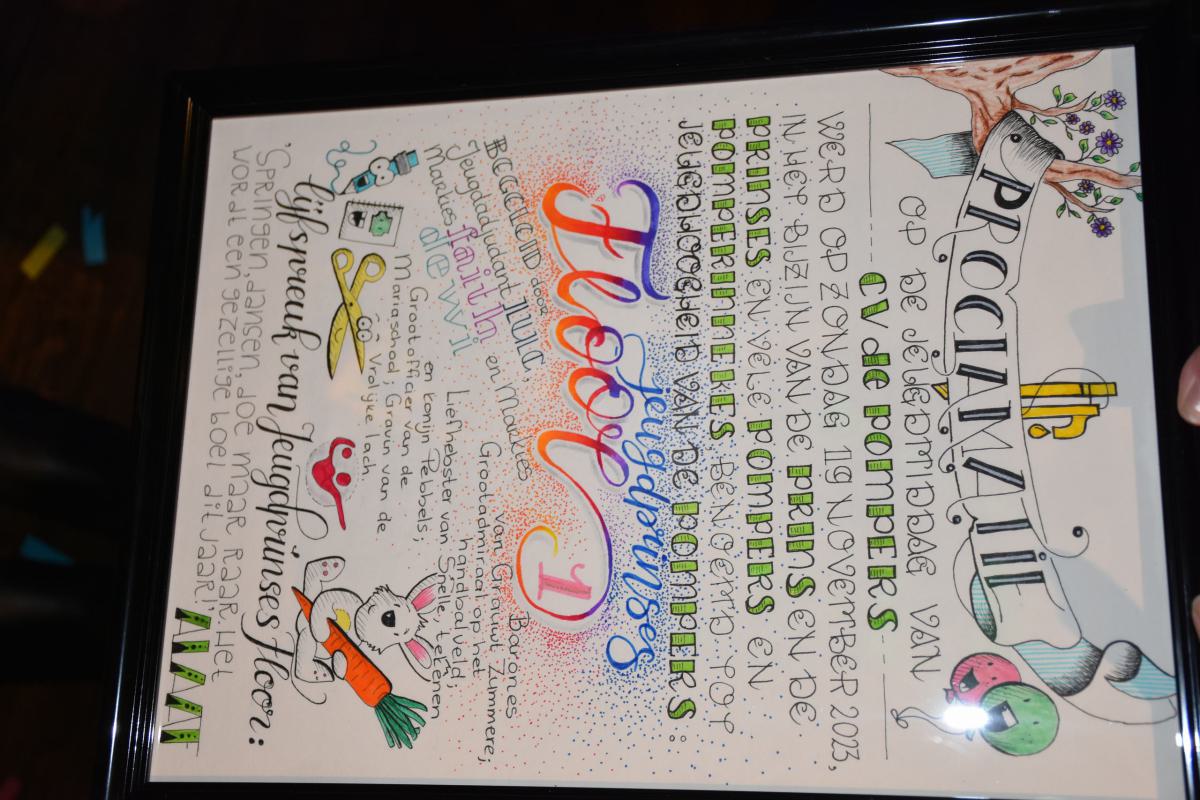 PROCLAMATIE
OP DE JEUGDMIDDAG VAN
CV de POMPERS
WERD OP ZONDAG 19 NOVEMBER 2023,
IN HET BIJZIJN VAN DE PRINS EN DE
PRINSES EN VELE POMPERS EN
POMPERINNEKES BENOEMD TOT
JEUDHOOGHEID VAN DE POMPERS:
jeugdprinses
Floor 1
BEGELEID door
Jeugdadjudant JUUL,
Marlies faith en Maulies
de wit
Barones
van Girauwt Zummere;
Grootadmiraal op het
handbalveld;
Liefhebster van Snelle, tekenen
en konijn Tebbels;
Grootofficier van de
Mariaschool; Gravin van de
Vrolijke lach
lijfspreuk van Jeugdprinses Floor:
'SPRINGEN, dansen, doe maar RAAR, HET
WORDT een gezellige boel dit jaar!'